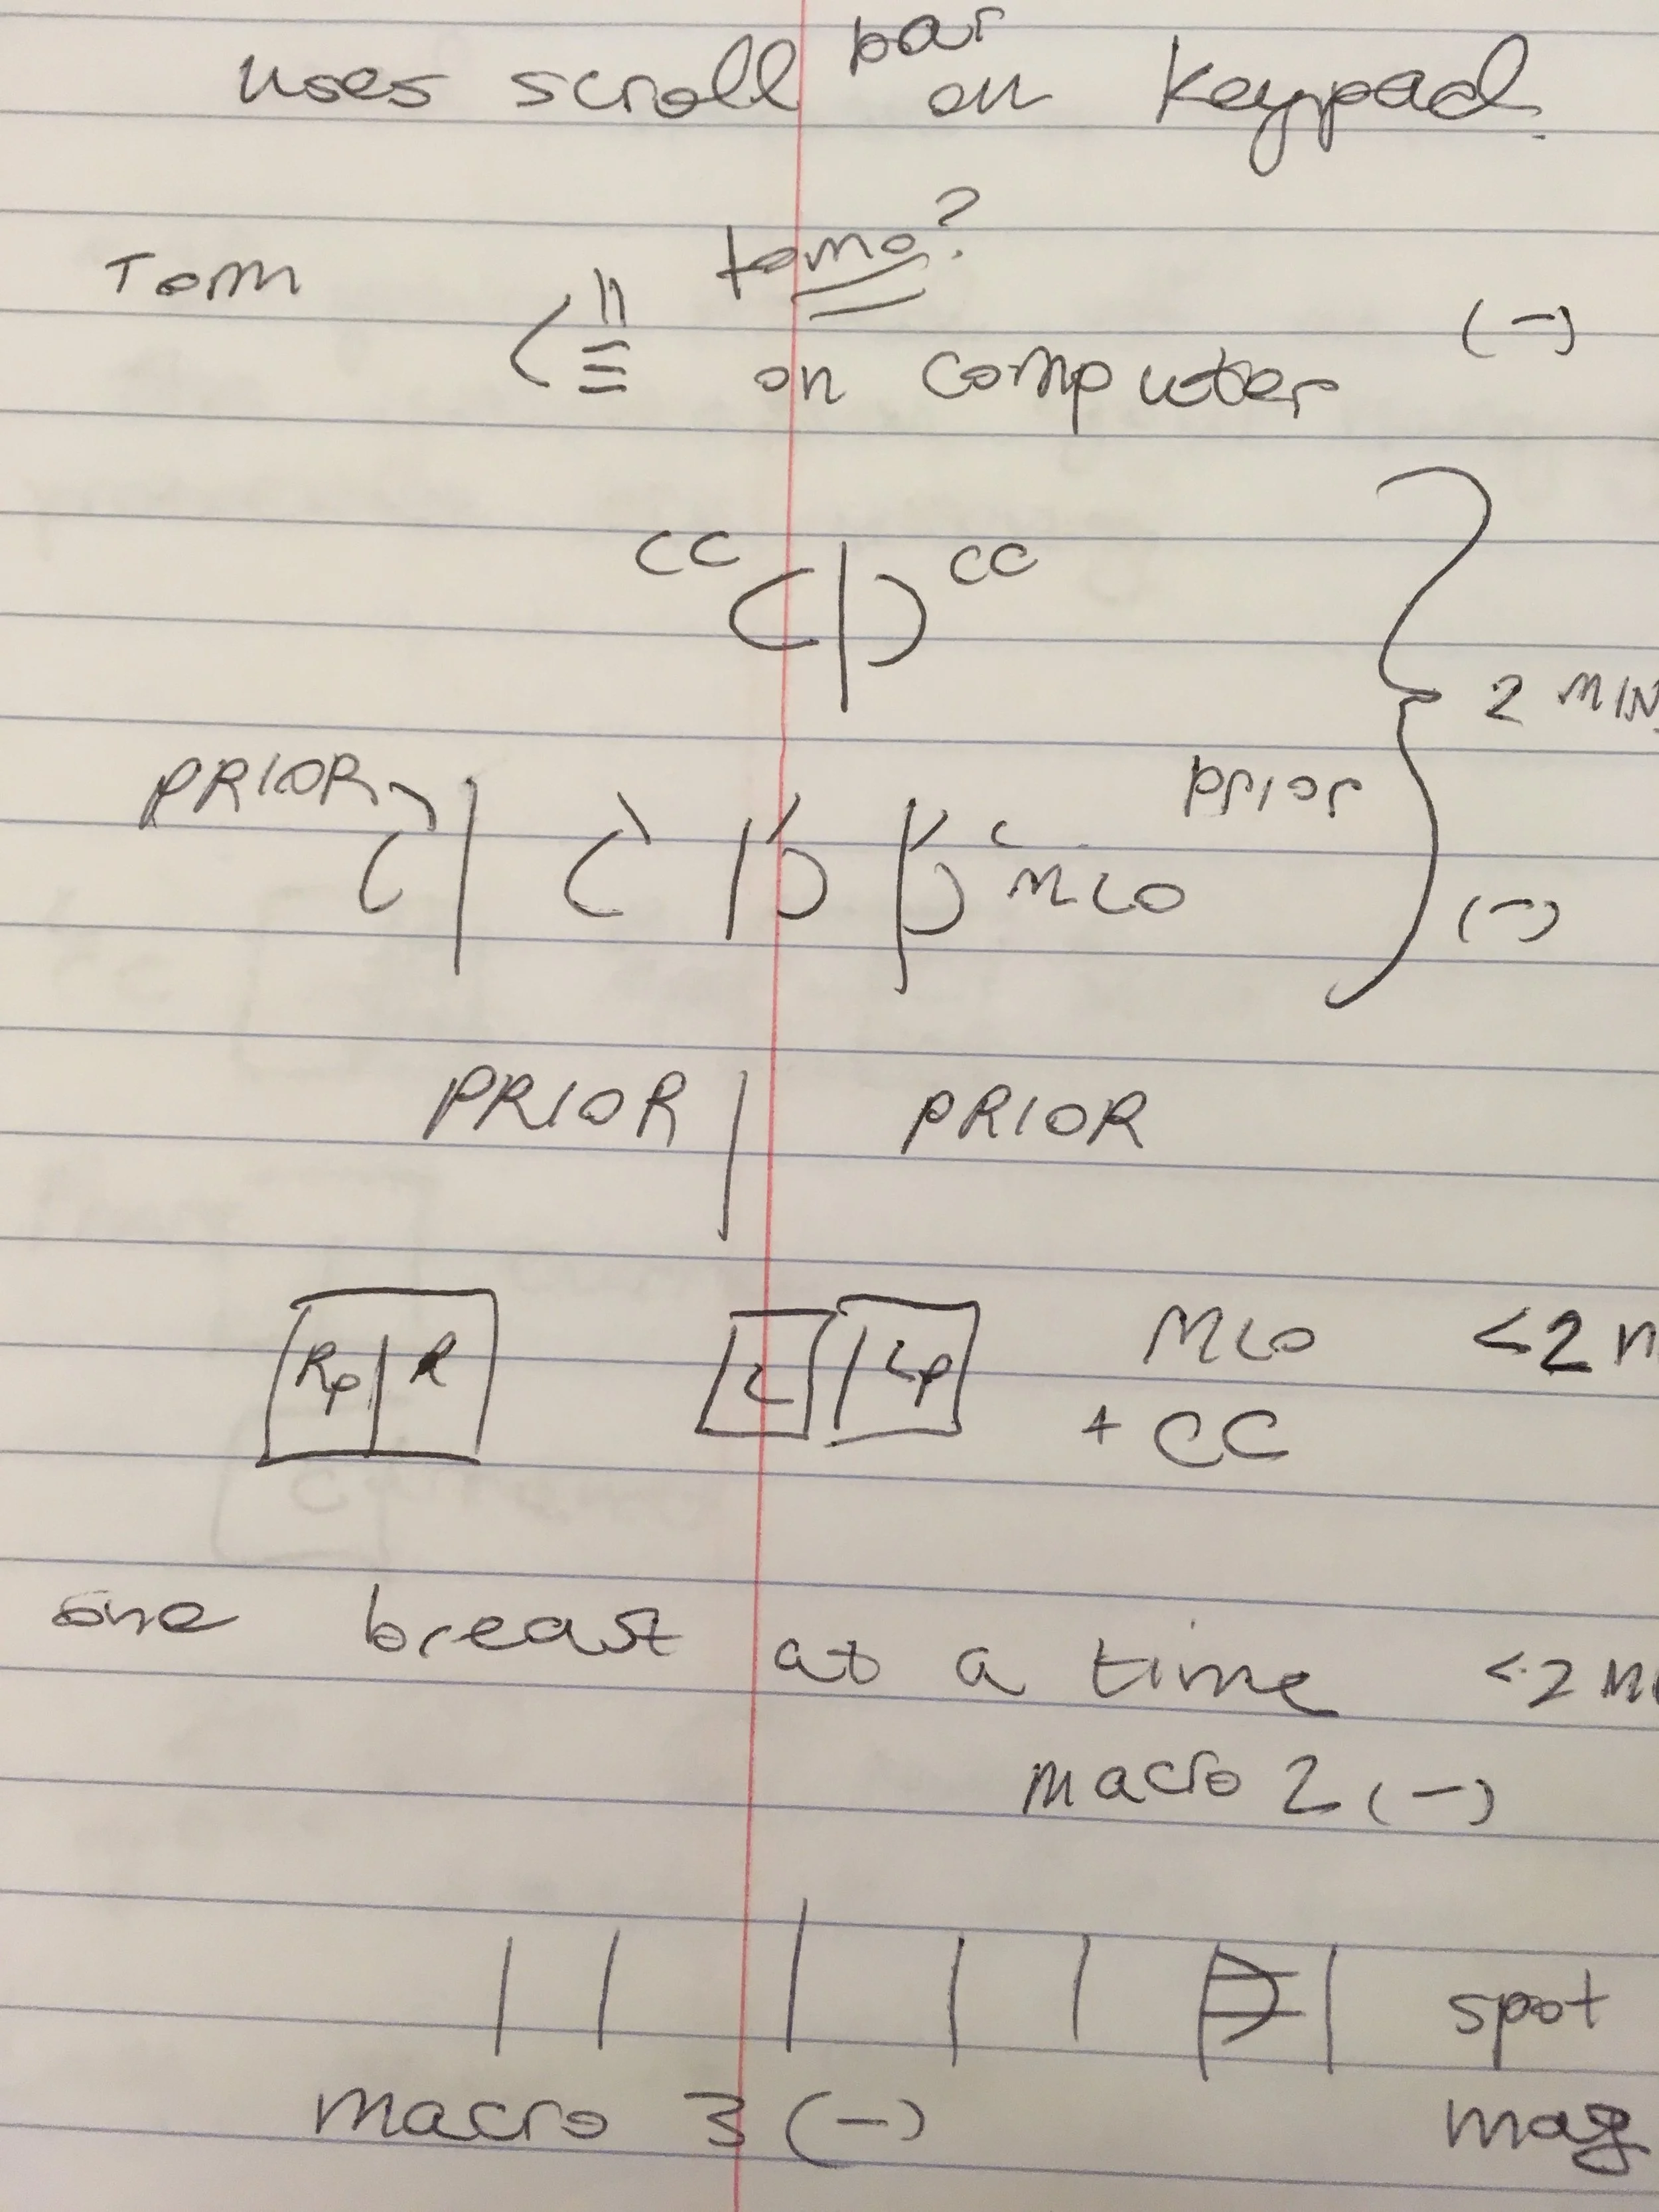 uses scroll bar on keypad.
Tom tomo? (-)
on computer
CC CC
2 MIN
PRIOR prior
MLO (-)
PRIOR PRIOR
Rp R L Lp MLO <2 m
+ CC
one breast at a time <2 m
macro 2 (-)
spot
macro 3 (-) mag